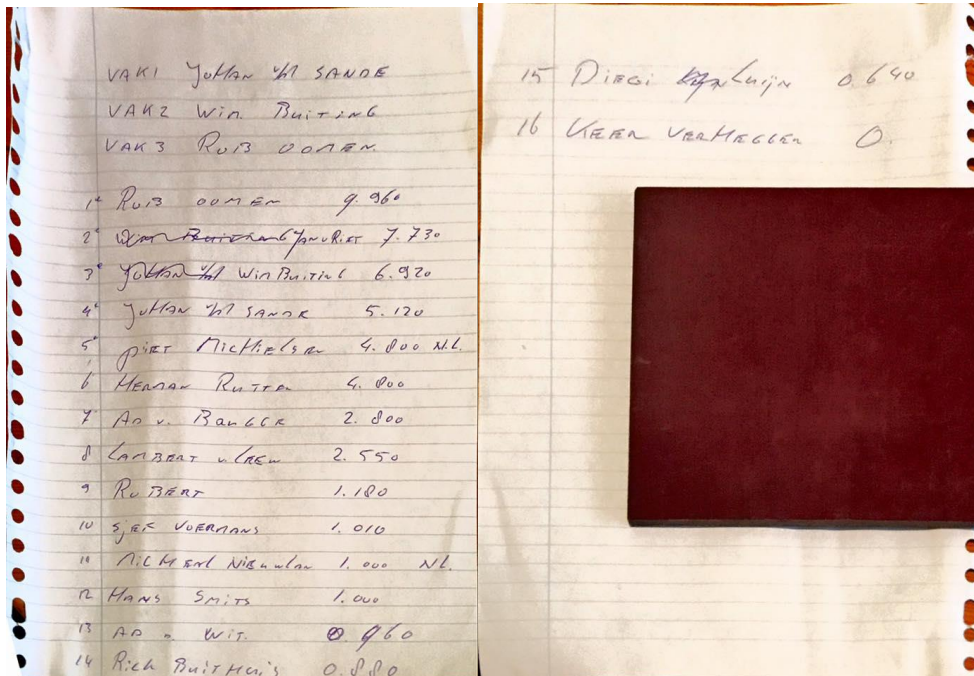 VAK1 JOHAN v/d SANDE
VAK2 Wim BUITING
VAK3 RUB OOMEN
1 RUB OOMEN 9.960
2 JAN v RIET 7.730
3 Wim BUITING 6.920
4 JOHAN v/d SANDE 5.120
5 PIET MICHIELSEN 4.800 N.L.
6 HERMAN RUTTEN 4.800
7 AD v. 2.800
8 LAMBERT v 2.550
9 RUBERT 1.180
10 SJEF VOERMANS 1.010
11 1.000 NL.
12 HANS SMITS 1.000
13 AD WIT. 960
14 RICK BUITHUIS 0.880
15 DIEGI Luijn 0.640
16 0.